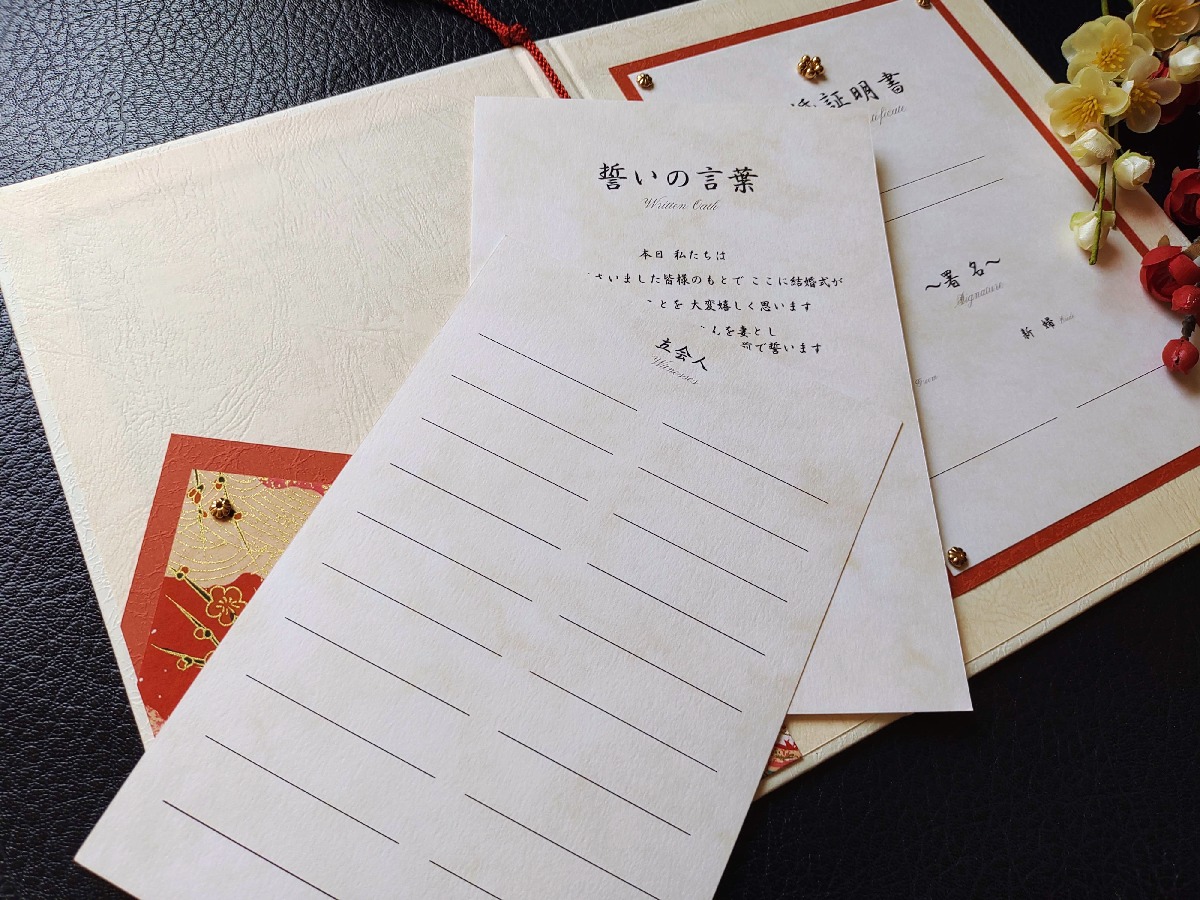 誓いの言葉
Written Oath
本日 私たちは
さいました皆様のもとで ここに結婚式が
ことを 大変嬉しく思います
を妻とし
で誓います
立会人
Witnesses
証明書
～署名～
Signature
新婦 Bride
Groom